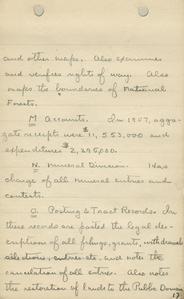 and other maps. Also examines
and verifies rights of way. Also
maps the boundaries of National
Forests.
M Accounts. In 1907, aggre-
gate receipts were $11,553,000 and
expenditures $2,295,000.
N. Mineral Division. Has
charge of all mineral entries and
contests.
O. Posting & Tract Records. In
these records are posted the legal de-
scription of all filings, grants, withdrawals
entries etc. and note the
cancelation of all entries. Also notes
the restoration of lands to the Public Domain
17